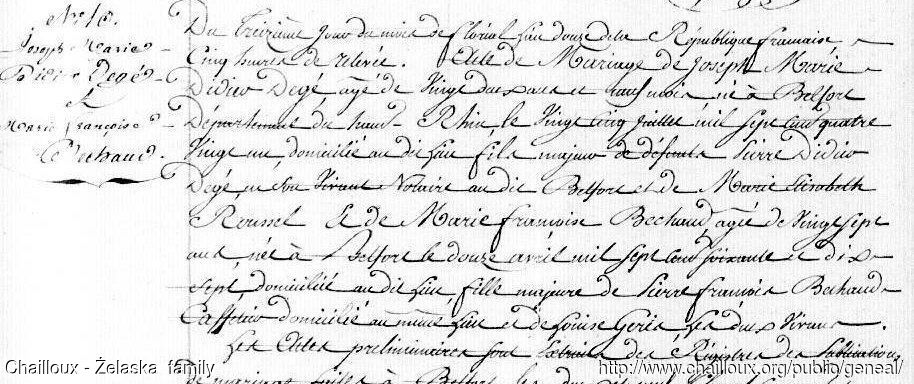 N.° 16.
Joseph Marie
Didier Degé
et
Marie françoise
Bechaud.
Du Treizieme jour du mois de floréal l'an douze de la République francaise
Cinq heures de relevée. Acte de Mariage de Joseph Marie
Didier Degé agé de Vingt deux ans et neuf mois né à Belfort
Département du haut Rhin, le Vingt cinq Juillet mil sept cent quatre
Vingt un, domicilié au dit lieu fils majeur de défunts Pierre Didier
Degé, en son Vivant Notaire au dit Belfort et de Marie Elisabeth
Roussel Et de Marie françoise Bechaud, agée de Vingt sept
ans née à Belfort le douze avril mil sept cent soixante et dix
sept, domiciliée au dit lieu, fille majeure de Pierre françois Bechaud
Caffetier domicilié au même lieu et de Louise Geris Les deux Vivans.
Les Actes préliminaires sont Extraits des Régistres des Publications
de mariage faites à Belfort les
Chailloux - Żelaska family
http://www.chailloux.org/public/geneal/